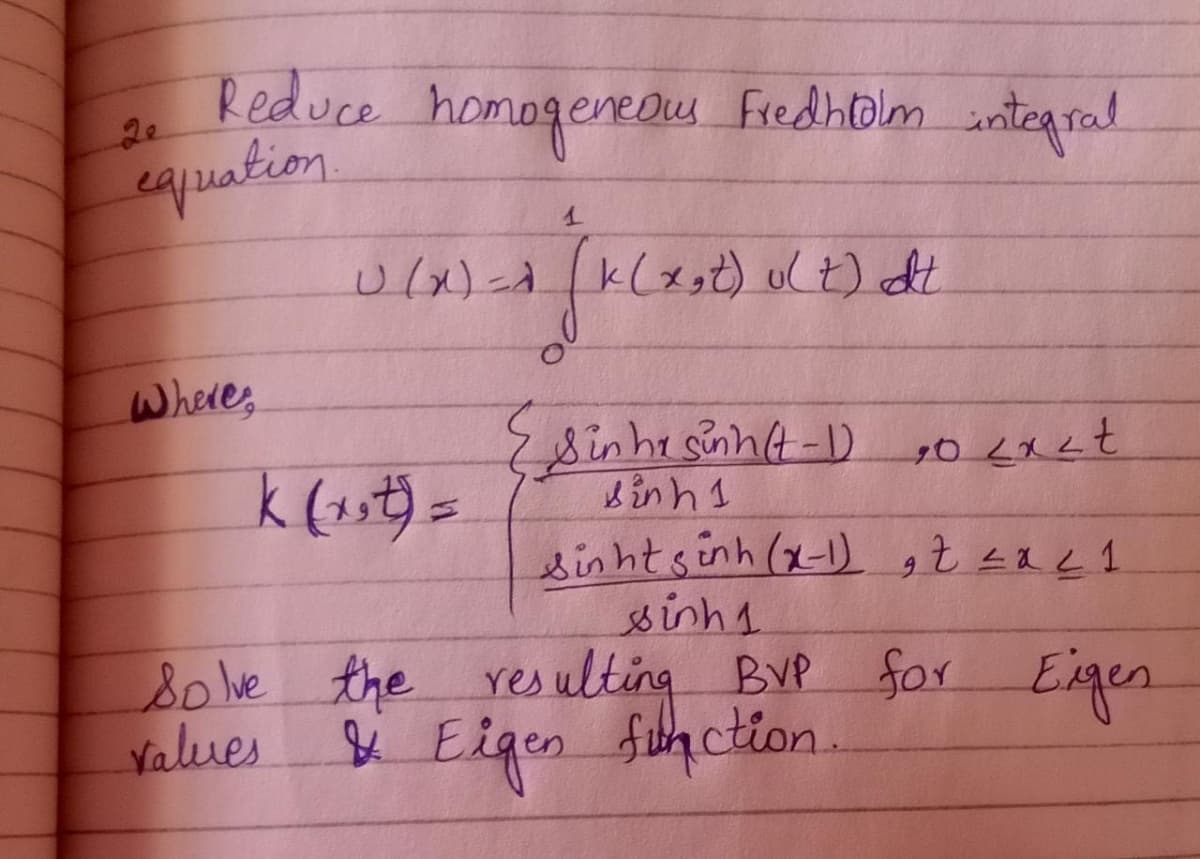 2. Reduce homogeneous Fredholm integral
equation.
U(x) = λ ∫₀¹ k(x,t) u(t) dt
Where,
k(x,t) = { sinhx sinh(t-1) / sinh1 , 0 ≤ x ≤ t
sinht sinh(x-1) / sinh1 , t ≤ x ≤ 1
Solve the resulting BVP for Eigen
values & Eigen function.